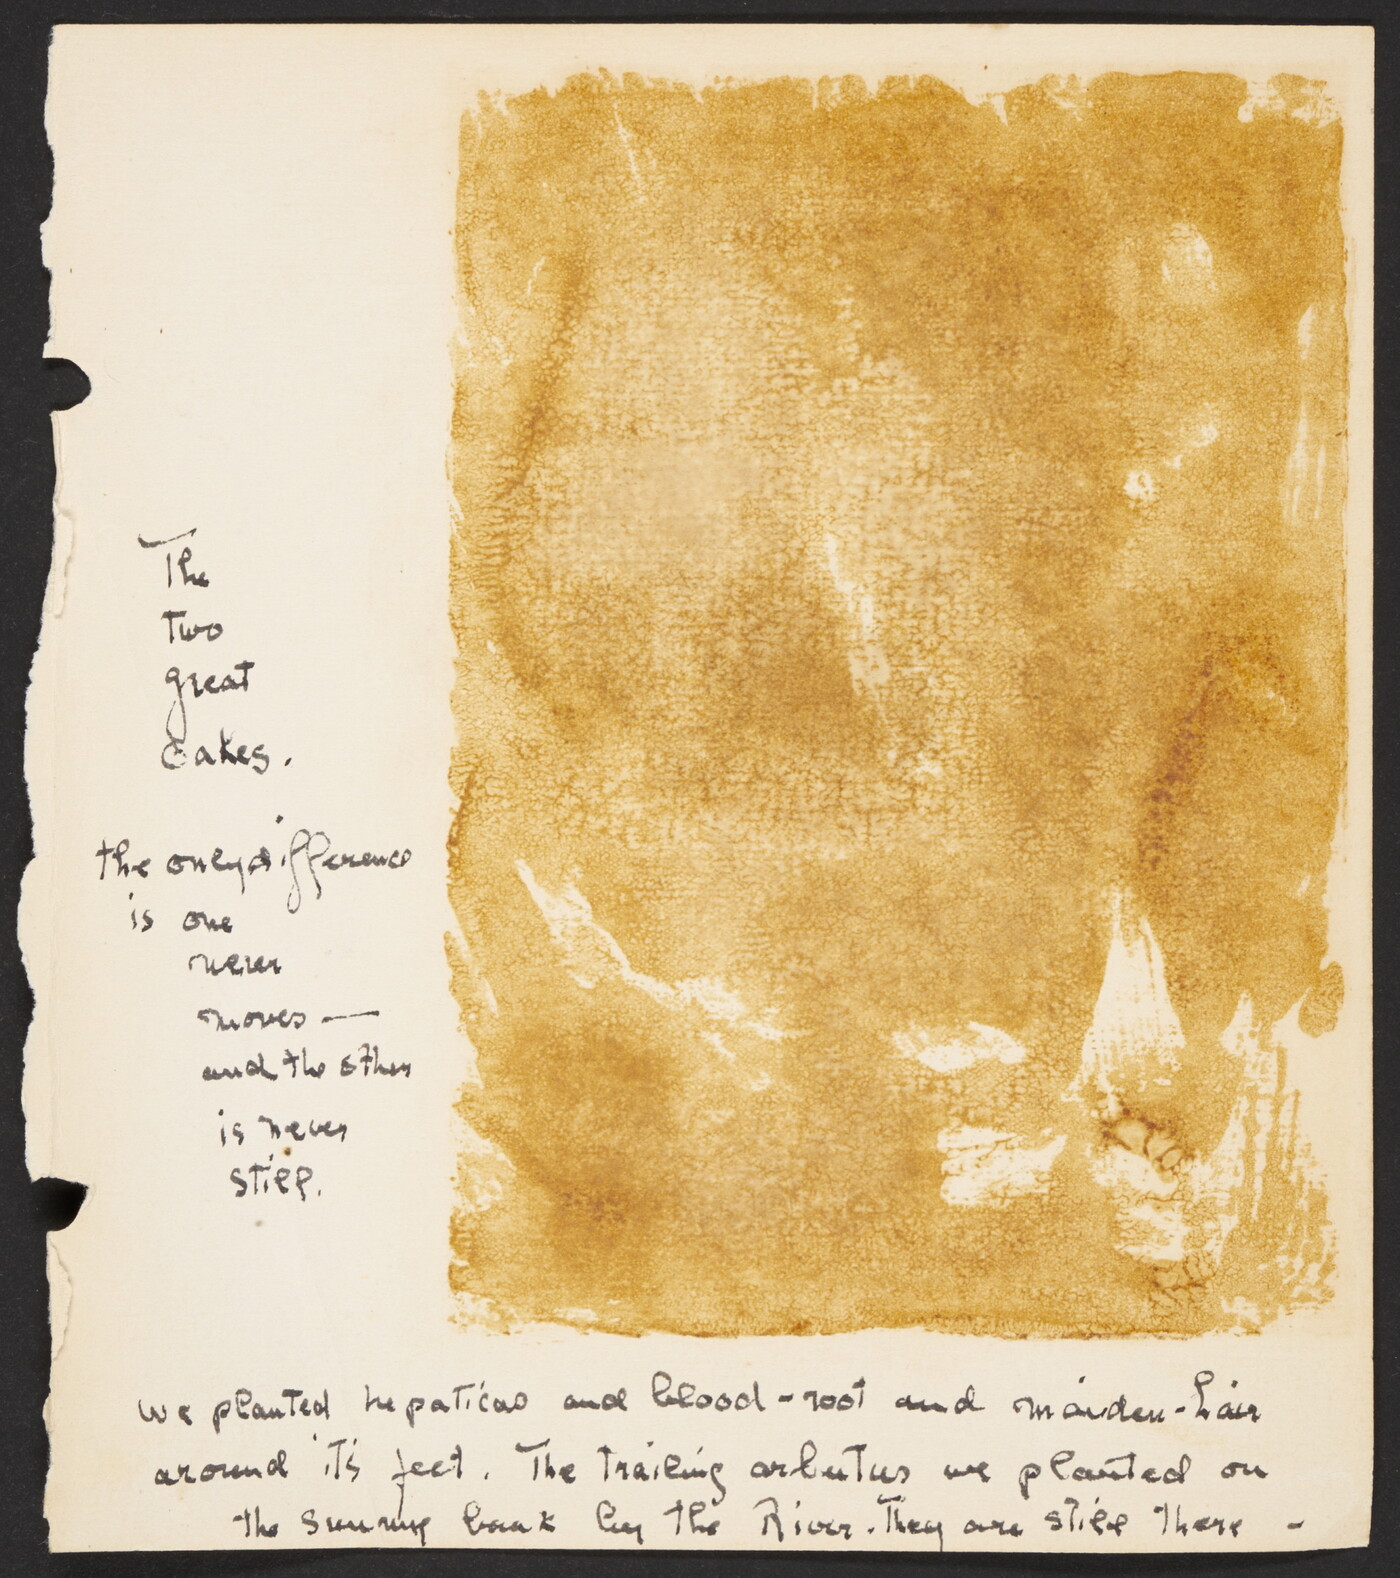 The
Two
great
oakes.
the only difference
is one
never
moves —
and the other
is never
still.
we planted hepaticas and blood-root and maiden-hair
around it's feet. The trailing arbutus we planted on
the sunny bank by the River. They are still there -